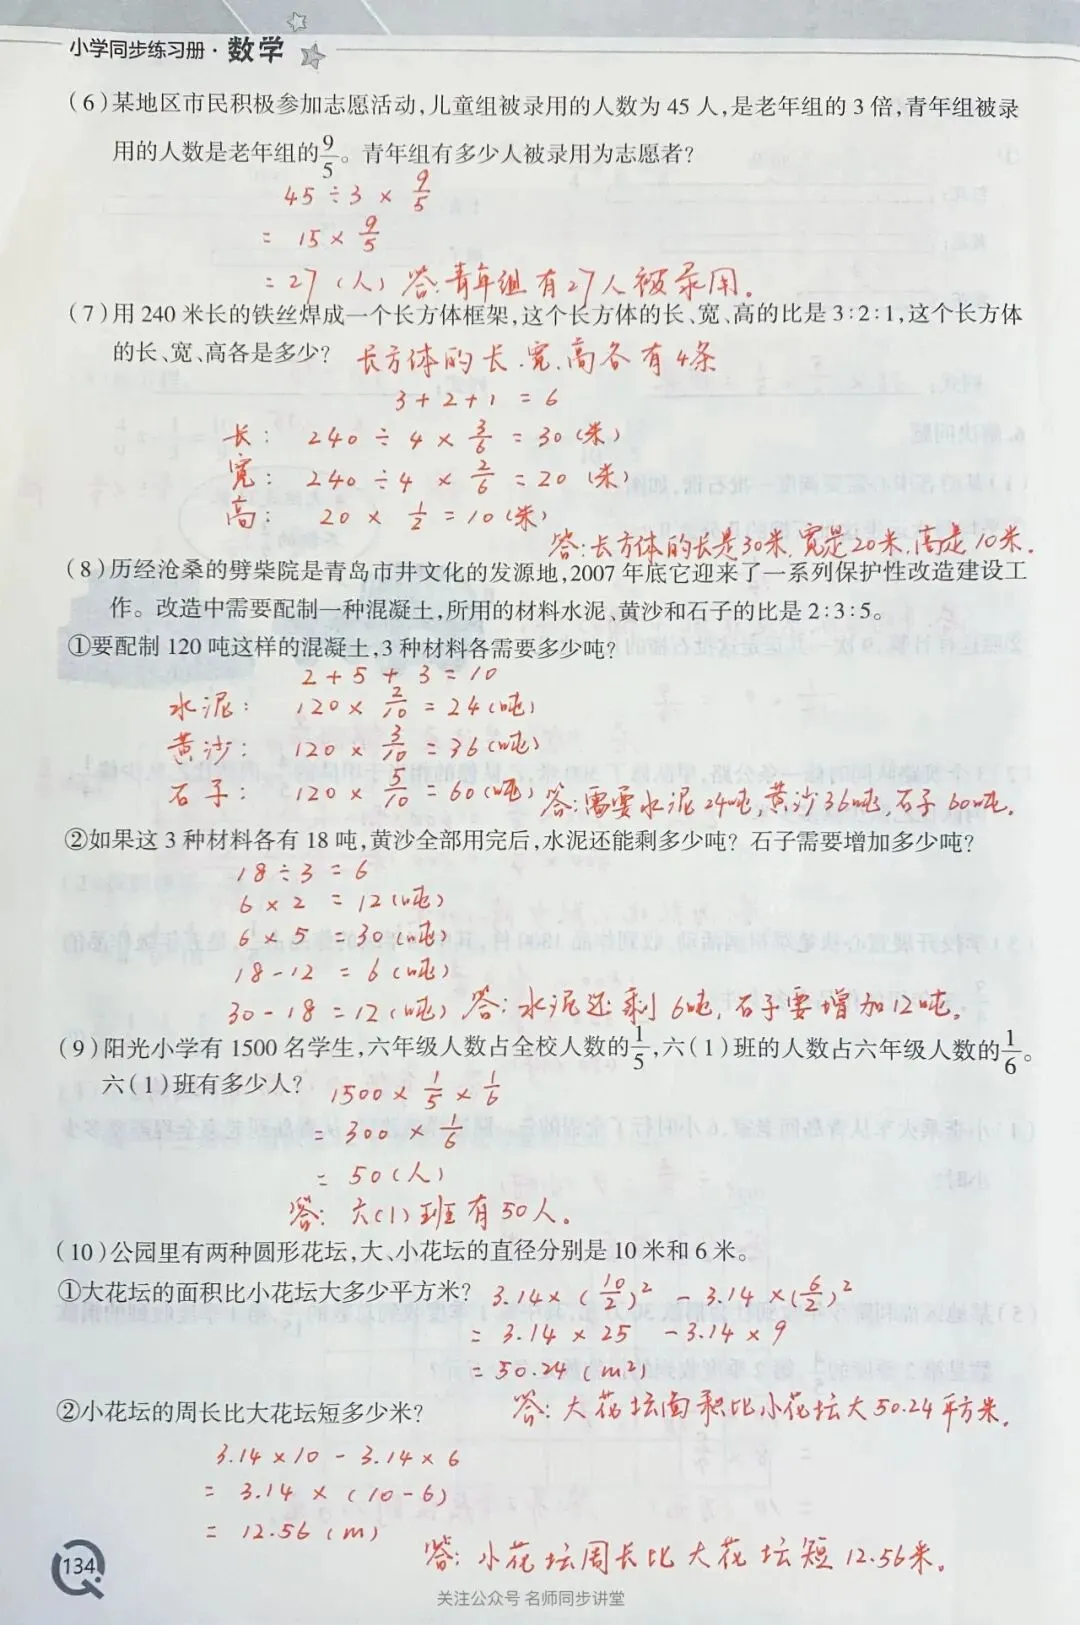 小学同步练习册·数学
(6)某地区市民积极参加志愿活动,儿童组被录用的人数为45人,是老年组的3倍,青年组被录
用的人数是老年组的9/5。青年组有多少人被录用为志愿者?
45÷3×9/5
=15×9/5
=27(人) 答:青年组有27人被录用。
(7)用240米长的铁丝焊成一个长方体框架,这个长方体的长、宽、高的比是3:2:1,这个长方体
的长、宽、高各是多少? 长方体的长.宽.高各有4条
3+2+1=6
长: 240÷4×3/6=30(米)
宽: 240÷4×2/6=20(米)
高: 20×1/2=10(米)
答:长方体的长是30米.宽是20米.高是10米.
(8)历经沧桑的劈柴院是青岛市井文化的发源地,2007年底它迎来了一系列保护性改造建设工
作。改造中需要配制一种混凝土,所用的材料水泥、黄沙和石子的比是2:3:5。
①要配制120吨这样的混凝土,3种材料各需要多少吨?
2+5+3=10
水泥: 120×2/10=24(吨)
黄沙: 120×3/10=36(吨)
石子: 120×5/10=60(吨) 答:需要水泥24吨,黄沙36吨,石子60吨.
②如果这3种材料各有18吨,黄沙全部用完后,水泥还能剩多少吨?石子需要增加多少吨?
18÷3=6
6×2=12(吨)
6×5=30(吨)
18-12=6(吨)
30-18=12(吨) 答:水泥还剩6吨,石子要增加12吨.
(9)阳光小学有1500名学生,六年级人数占全校人数的1/5,六(1)班的人数占六年级人数的1/6。
六(1)班有多少人? 1500×1/5×1/6
=300×1/6
=50(人)
答:六(1)班有50人。
(10)公园里有两种圆形花坛,大、小花坛的直径分别是10米和6米。
①大花坛的面积比小花坛大多少平方米? 3.14×(10/2)²-3.14×(6/2)²
=3.14×25-3.14×9
=50.24(m²)
答:大花坛面积比小花坛大50.24平方米.
②小花坛的周长比大花坛短多少米?
3.14×10-3.14×6
=3.14×(10-6)
=12.56(m)
答:小花坛周长比大花坛短12.56米。
134
关注公众号 名师同步讲堂